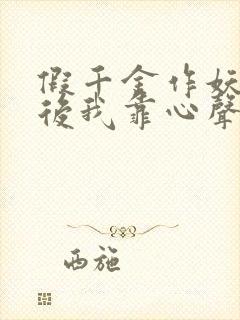 假千金作妖
後我靠心聲
西施